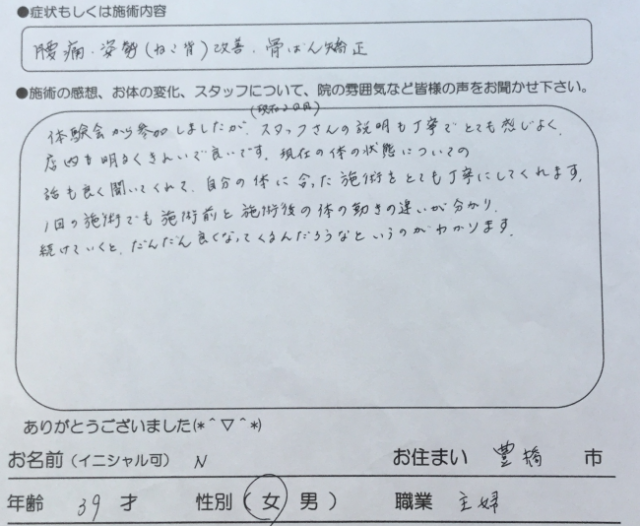 ●症状もしくは施術内容
腰痛・姿勢(ねこ背)改善・骨ばん矯正
●施術の感想、お体の変化、スタッフについて、院の雰囲気など皆様の声をお聞かせ下さい。
(現在2回目)
体験会から参加しましたが、スタッフさんの説明も丁寧でとても感じよく、
店内も明るくきれいで良いです。現在の体の状態についての
話も良く聞いてくれて、自分の体に合った施術をとても丁寧にしてくれます。
1回の施術でも施術前と施術後の体の動きの違いが分かり、
続けていくと、だんだん良くなってくるんだろうなというのがわかります。
ありがとうございました(*^▽^*)
お名前(イニシャル可) N お住まい 豊橋 市
年齢 39 才 性別(女 男) 職業 主婦